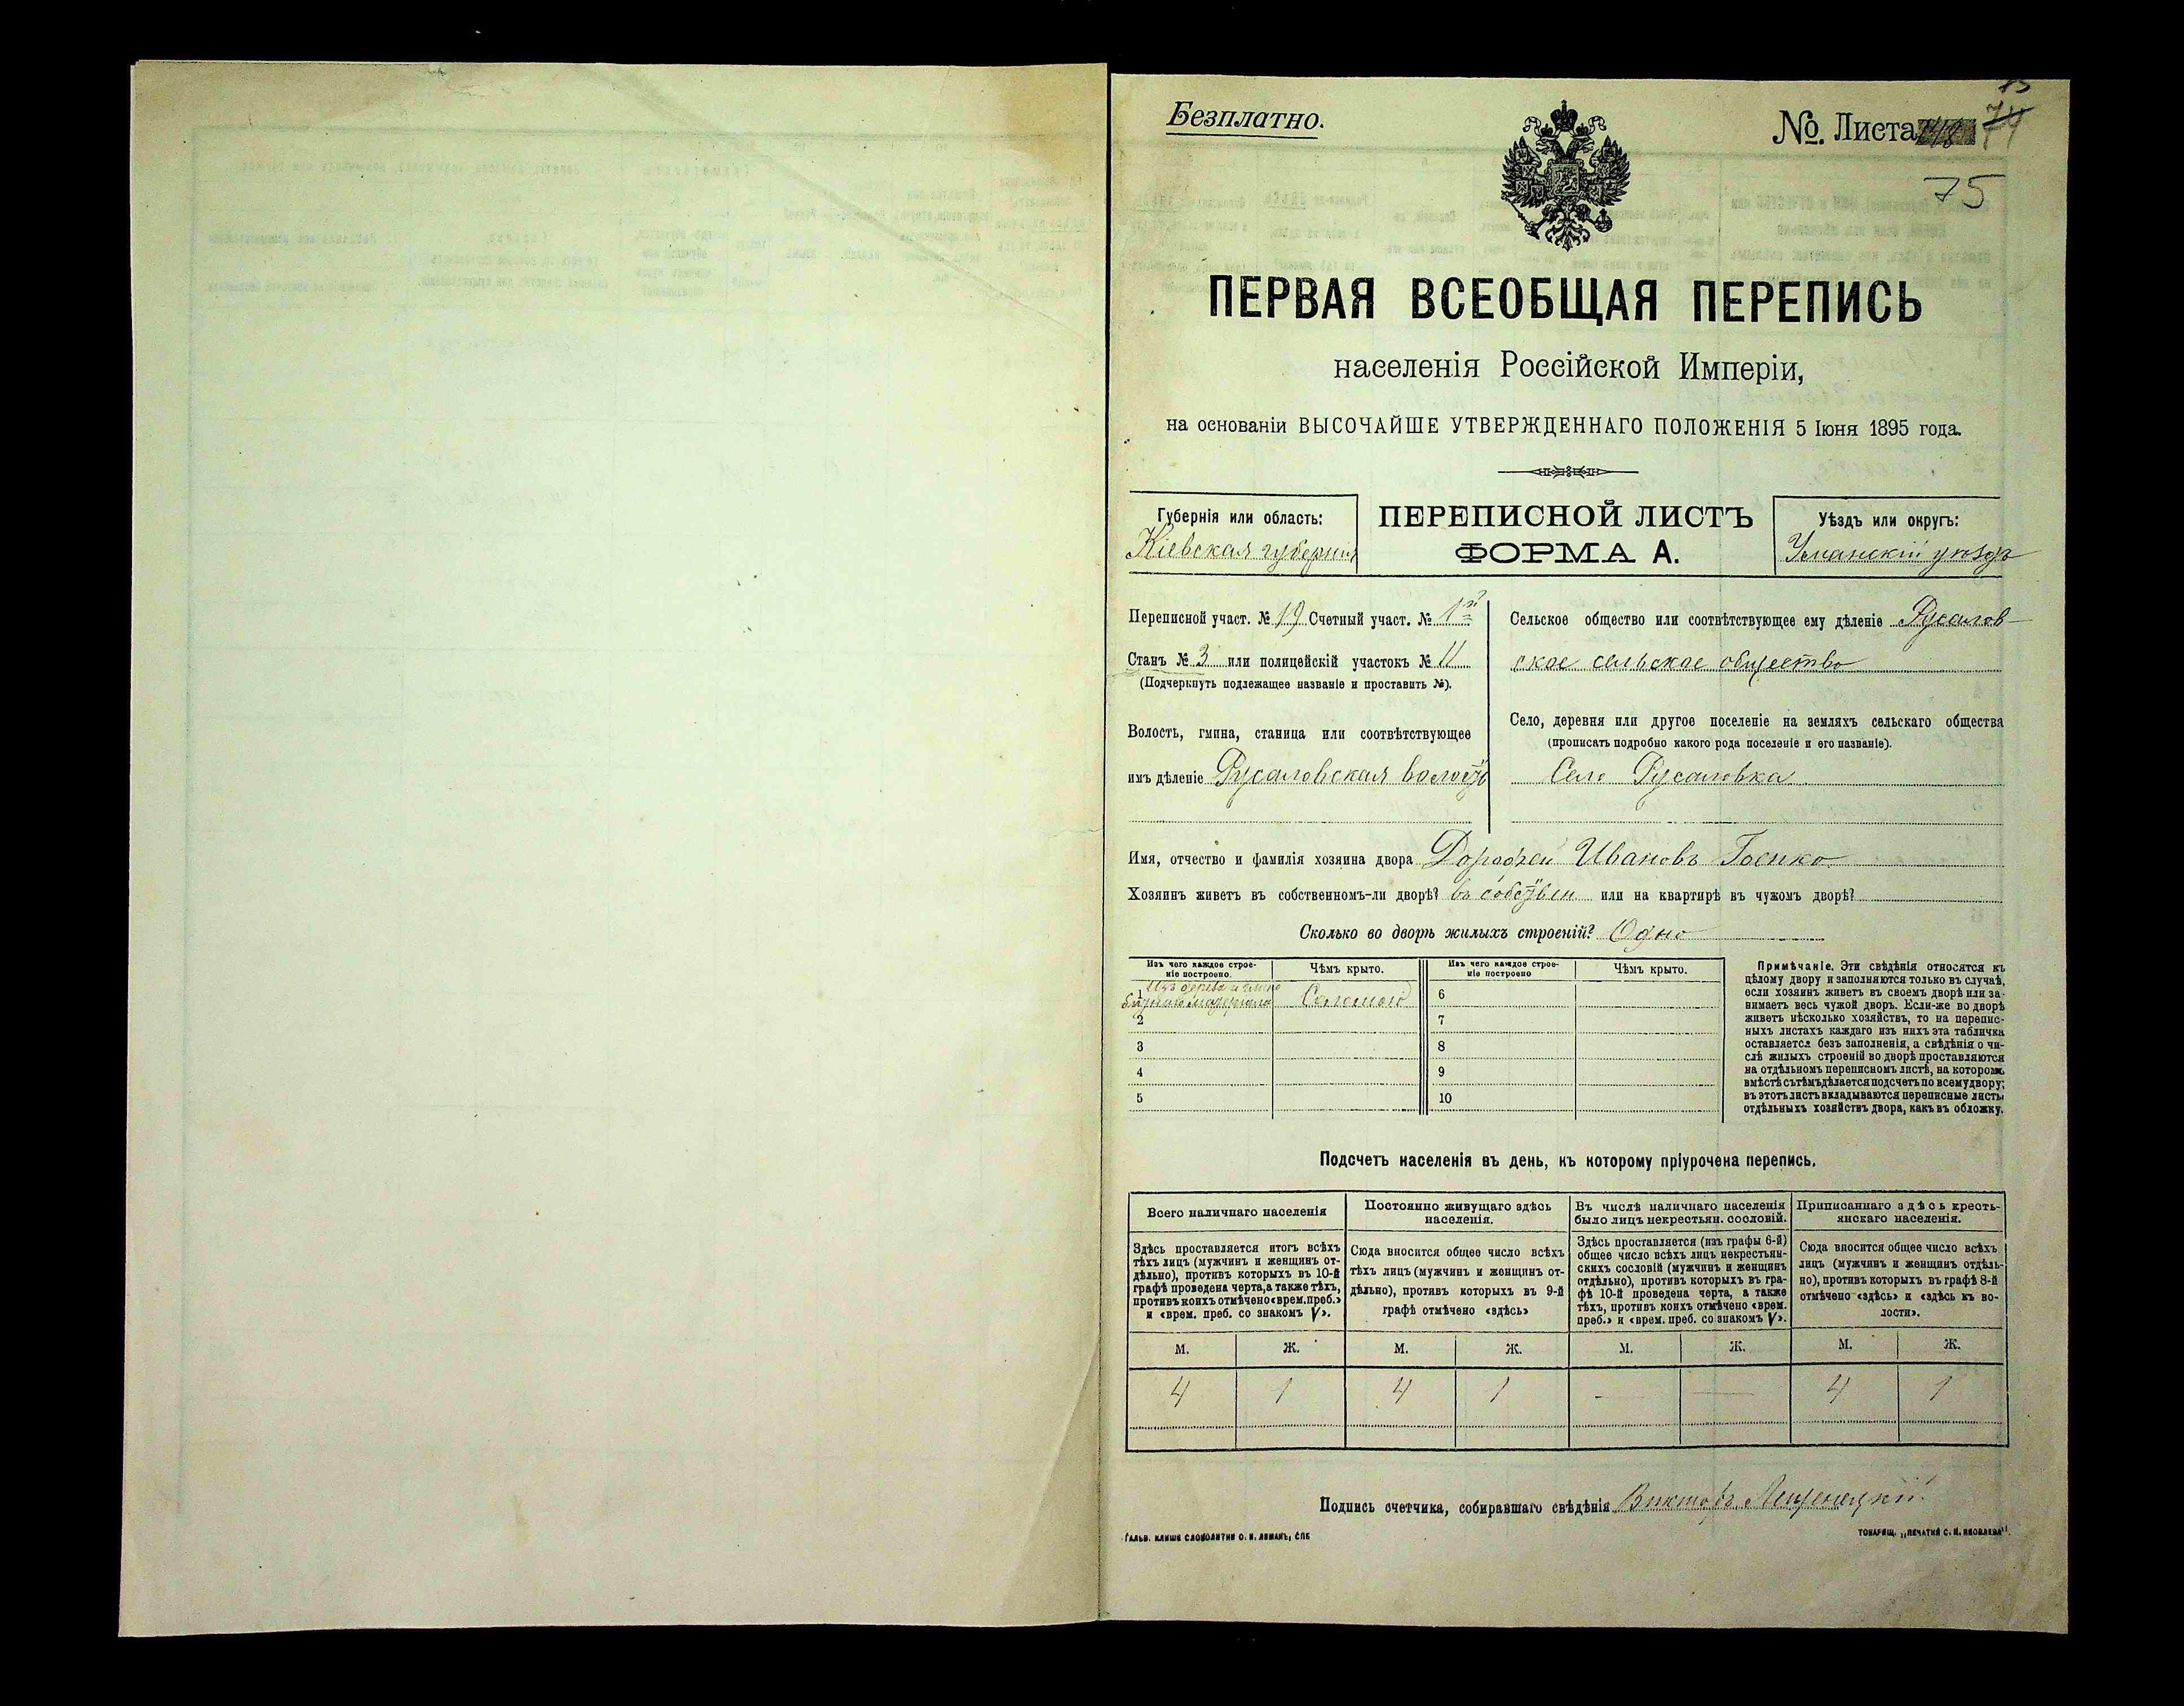 Безплатно.
№. Листа
75
ПЕРВАЯ ВСЕОБЩАЯ ПЕРЕПИСЬ
населенія Россійской Имперіи,
на основаніи ВЫСОЧАЙШЕ УТВЕРЖДЕННАГО ПОЛОЖЕНІЯ 5 Іюня 1895 года.
Губернія или область:
Кіевская губернія
ПЕРЕПИСНОЙ ЛИСТЪ
ФОРМА А.
Уѣздъ или округъ:
Уманскій уѣздъ
Переписной участ. № 19 Счетный участ. № 1й
Станъ № 3 или полицейскій участокъ № 11
(Подчеркнуть подлежащее названіе и проставить №).
Волость, гмина, станица или соотвѣтствующее
имъ дѣленіе Русаловская волость
Сельское общество или соотвѣтствующее ему дѣленіе Русалов-
ское сельское общество
Село, деревня или другое поселеніе на земляхъ сельскаго общества
(прописать подробно какого рода поселеніе и его названіе).
Село Русаловка
Имя, отчество и фамилія хозяина двора Дорофей Ивановъ
Хозяинъ живетъ въ собственномъ-ли дворѣ? въ собствен или на квартирѣ въ чужомъ дворѣ?
Сколько во дворѣ жилыхъ строеній? Одно
Изъ чего каждое строе-
ніе построено.
Чѣмъ крыто.
Изъ чего каждое строе-
ніе построено
Чѣмъ крыто.
1 Изъ дерева и
Соломою
6
2
7
3
8
4
9
5
10
Примѣчаніе. Эти свѣдѣнія относятся къ
цѣлому двору и заполняются только въ случаѣ,
если хозяинъ живетъ въ своемъ дворѣ или за-
нимаетъ весь чужой дворъ. Если-же во дворѣ
живетъ нѣсколько хозяйствъ, то на перепис-
ныхъ листахъ каждаго изъ нихъ эта табличка
оставляется безъ заполненія, а свѣдѣнія о чи-
слѣ жилыхъ строеній во дворѣ проставляются
на отдѣльномъ переписномъ листѣ, на которомъ
вмѣстѣ съ тѣмъ дѣлается подсчетъ по всему двору;
въ этотъ листъ вкладываются переписные листы
отдѣльныхъ хозяйствъ двора, какъ въ обложку.
Подсчетъ населенія въ день, къ которому пріурочена перепись.
Всего наличнаго населенія
Здѣсь проставляется итогъ всѣхъ
тѣхъ лицъ (мужчинъ и женщинъ от-
дѣльно), противъ которыхъ въ 10-й
графѣ проведена черта, а также тѣхъ,
противъ коихъ отмѣчено «врем. преб.»
и «врем. преб. со знакомъ V».
Постоянно живущаго здѣсь
населенія.
Сюда вносится общее число всѣхъ
тѣхъ лицъ (мужчинъ и женщинъ от-
дѣльно), противъ которыхъ въ 9-й
графѣ отмѣчено «здѣсь»
Въ числѣ наличнаго населенія
было лицъ некрестьян. сословій.
Здѣсь проставляется (изъ графы 6-й)
общее число всѣхъ лицъ некрестьян-
скихъ сословій (мужчинъ и женщинъ
отдѣльно), противъ которыхъ въ гра-
фѣ 10-й проведена черта, а также
тѣхъ, противъ коихъ отмѣчено «врем.
преб.» и «врем. преб. со знакомъ V».
Приписаннаго здѣсь кресть-
янскаго населенія.
Сюда вносится общее число всѣхъ
лицъ (мужчинъ и женщинъ отдѣль-
но), противъ которыхъ въ графѣ 8-й
отмѣчено «здѣсь» и «здѣсь къ во-
лости».
М. Ж. М. Ж. М. Ж. М. Ж.
4 1 4 1 — — 4 1
Подпись счетчика, собиравшаго свѣдѣнія Викторъ
ГАЛЬВ. КЛИШЕ СЛОВОЛИТНИ О. И. ЛЕМАНЪ, СПБ
ТОВАРИЩ. „ПЕЧАТНЯ С. П. ЯКОВЛЕВА".